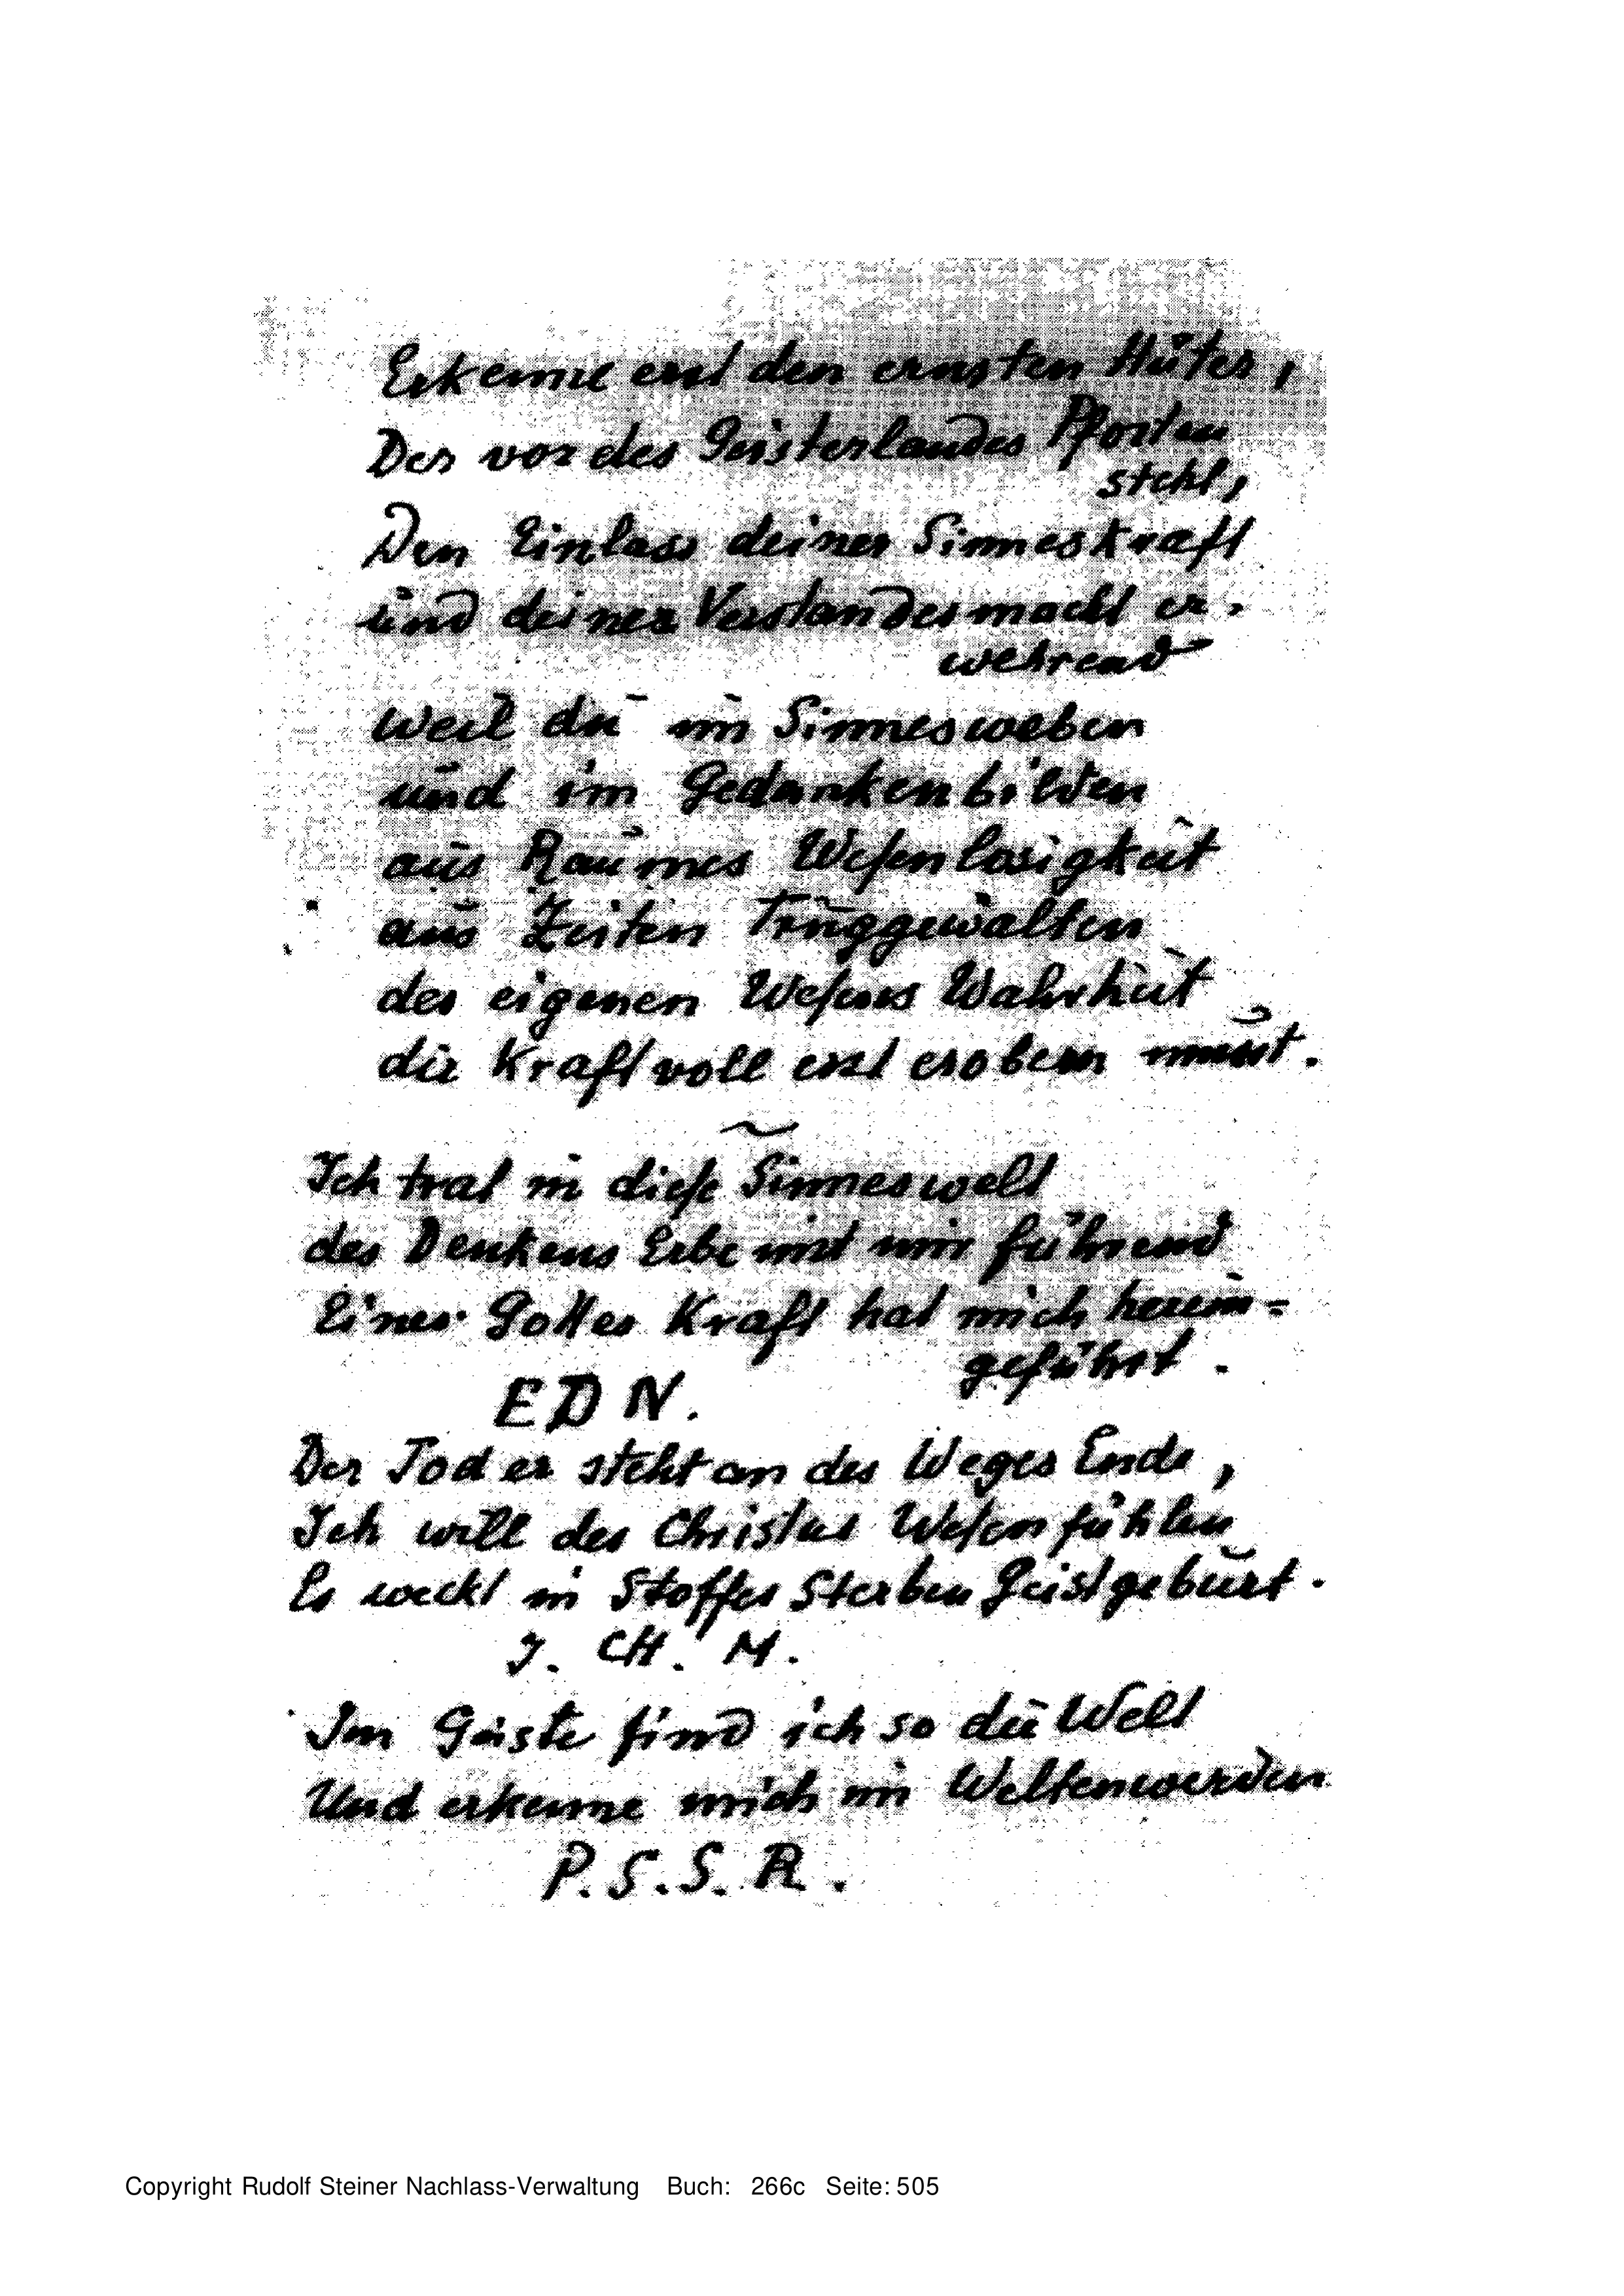 Erkenne erst den ernsten Hüter,
Der vor des Geisterlandes Pforten
steht,
Den Einlass deiner Sinneskraft
und deines Verstandesmacht er-
wehrend
Weil du im Sinnesweben
und im Gedankenbilden
aus Raumes Wesenlosigkeit
aus Zeiten Truggewalten
des eigenen Wesens Wahrheit
dir Kraftvoll erst erobern musst.
~
Ich trat in diese Sinneswelt
des Denkens Erbe mit mir führend
Eines Gottes Kraft hat mich herein=
geführt.
E D N.
Der Tod er steht an des Weges Ende,
Ich will des Christus Wesen fühlen
Es weckt in Stoffes Sterben Geistgeburt.
J. CH. M.
Im Geiste find ich so die Welt
Und erkenne mich im Weltenwerden
P. S. S. R.
Copyright Rudolf Steiner Nachlass-Verwaltung Buch: 266c Seite: 505